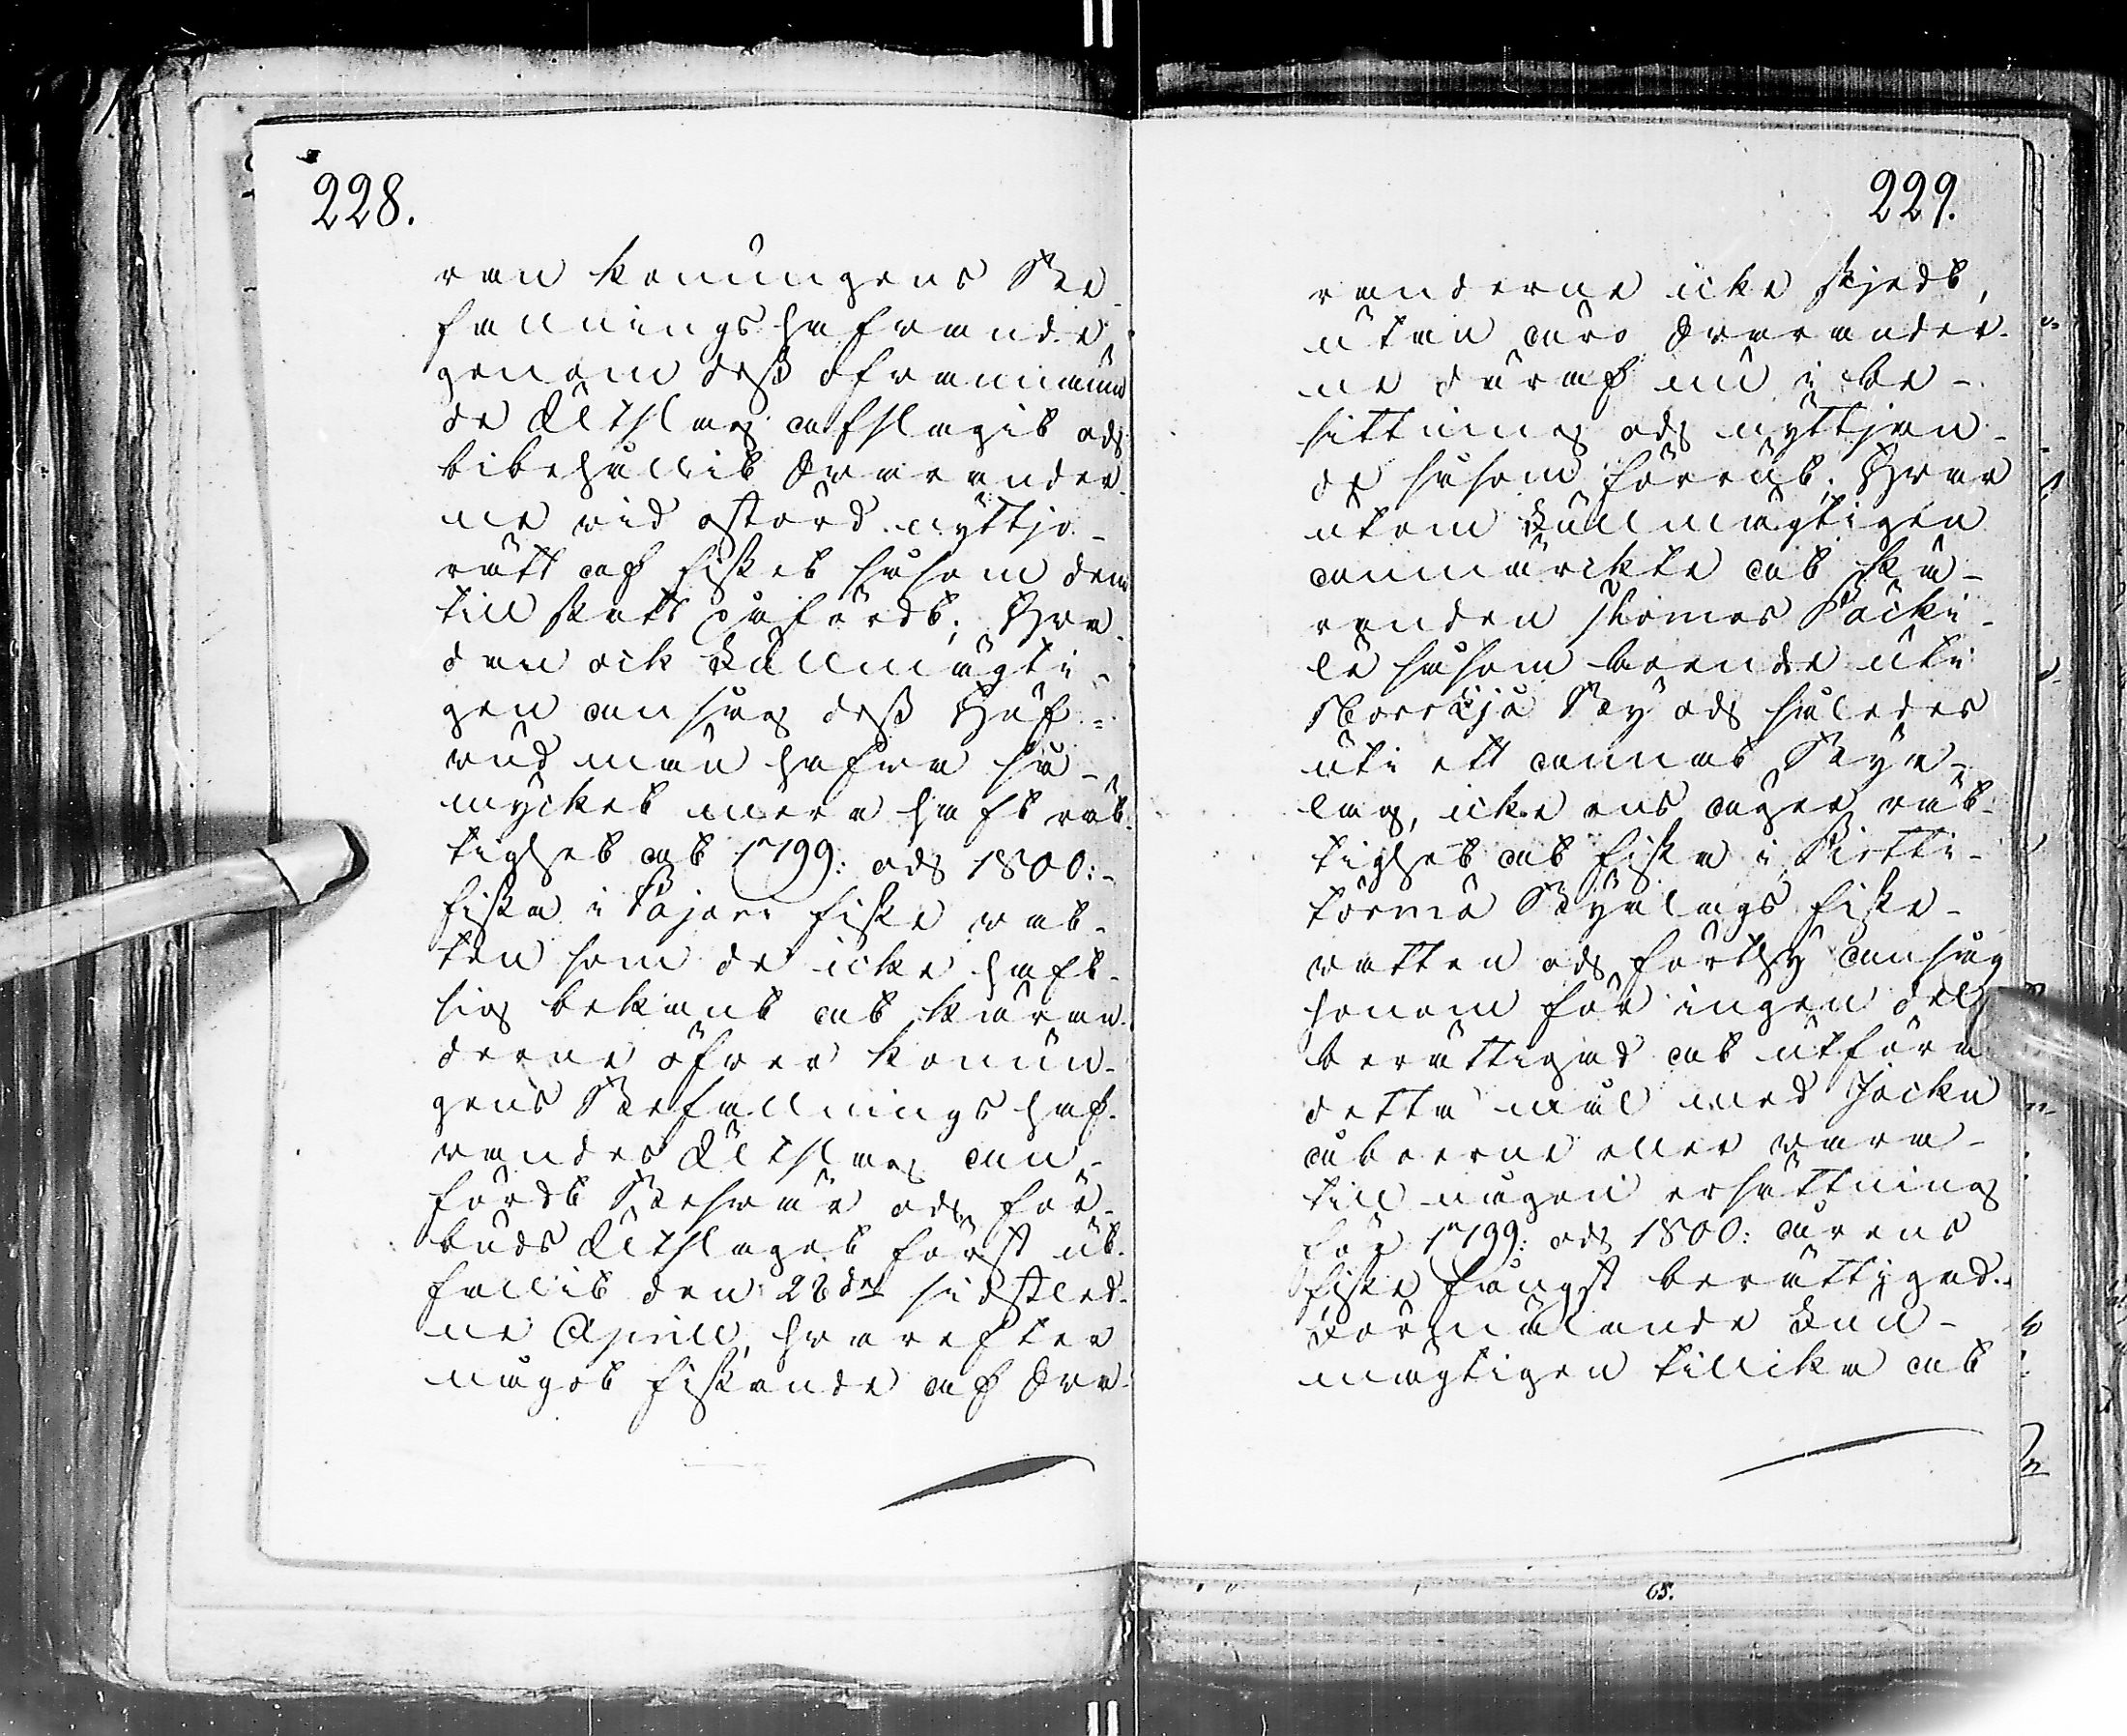 228.
ran Konungens Be-
fallningshafwande
genom dess ofwannämn
de Utslag afslagit och
bibehållit Swarander-
ne wid ostörd nyttjo-
rätt af fisket såsom dem
till skatt påfördt; Hwa-
dan ock Fullmägti-
gen ansåg dess Huf-
wudmän hafwa så
mycket mera haft rät-
tighet at 1799: och 1800:-
fiska i Pajari fiske wat-
ten som de icke haft
sig bekant at Käran-
derne öfwer Konun-
gens Befallningshaf-
wandes Utslag an-
fördt Beswär och för-
buds Utslaget först ut-
fallit den 28de sidstled-
ne Aprill, hwarefter
något fiskande af Swa-
229.
randerne icke skjedt,
utan äro Swarander-
ne däraf nu i be-
sittning och nyttjan-
de såsom förrut; Hwar
utom Fullmägtigen
anmärckte at Kä-
randen Thomas Päcki-
lä såsom boende uti
Norckja By och således
uti ett annat Bya-
lag, icke ens äger rät-
tighet at fiska i Kietti-
törmä Byalags fiske-
watten och förthy ansåg
honom för ingen del
berättigad at utföra
detta mål med Jocku
åboerne eller wara
till någon ersättning
för 1799: och 1800: årens
fiske fångst berättigad.
Förmälande Full-
mägtigen tillika at
65.